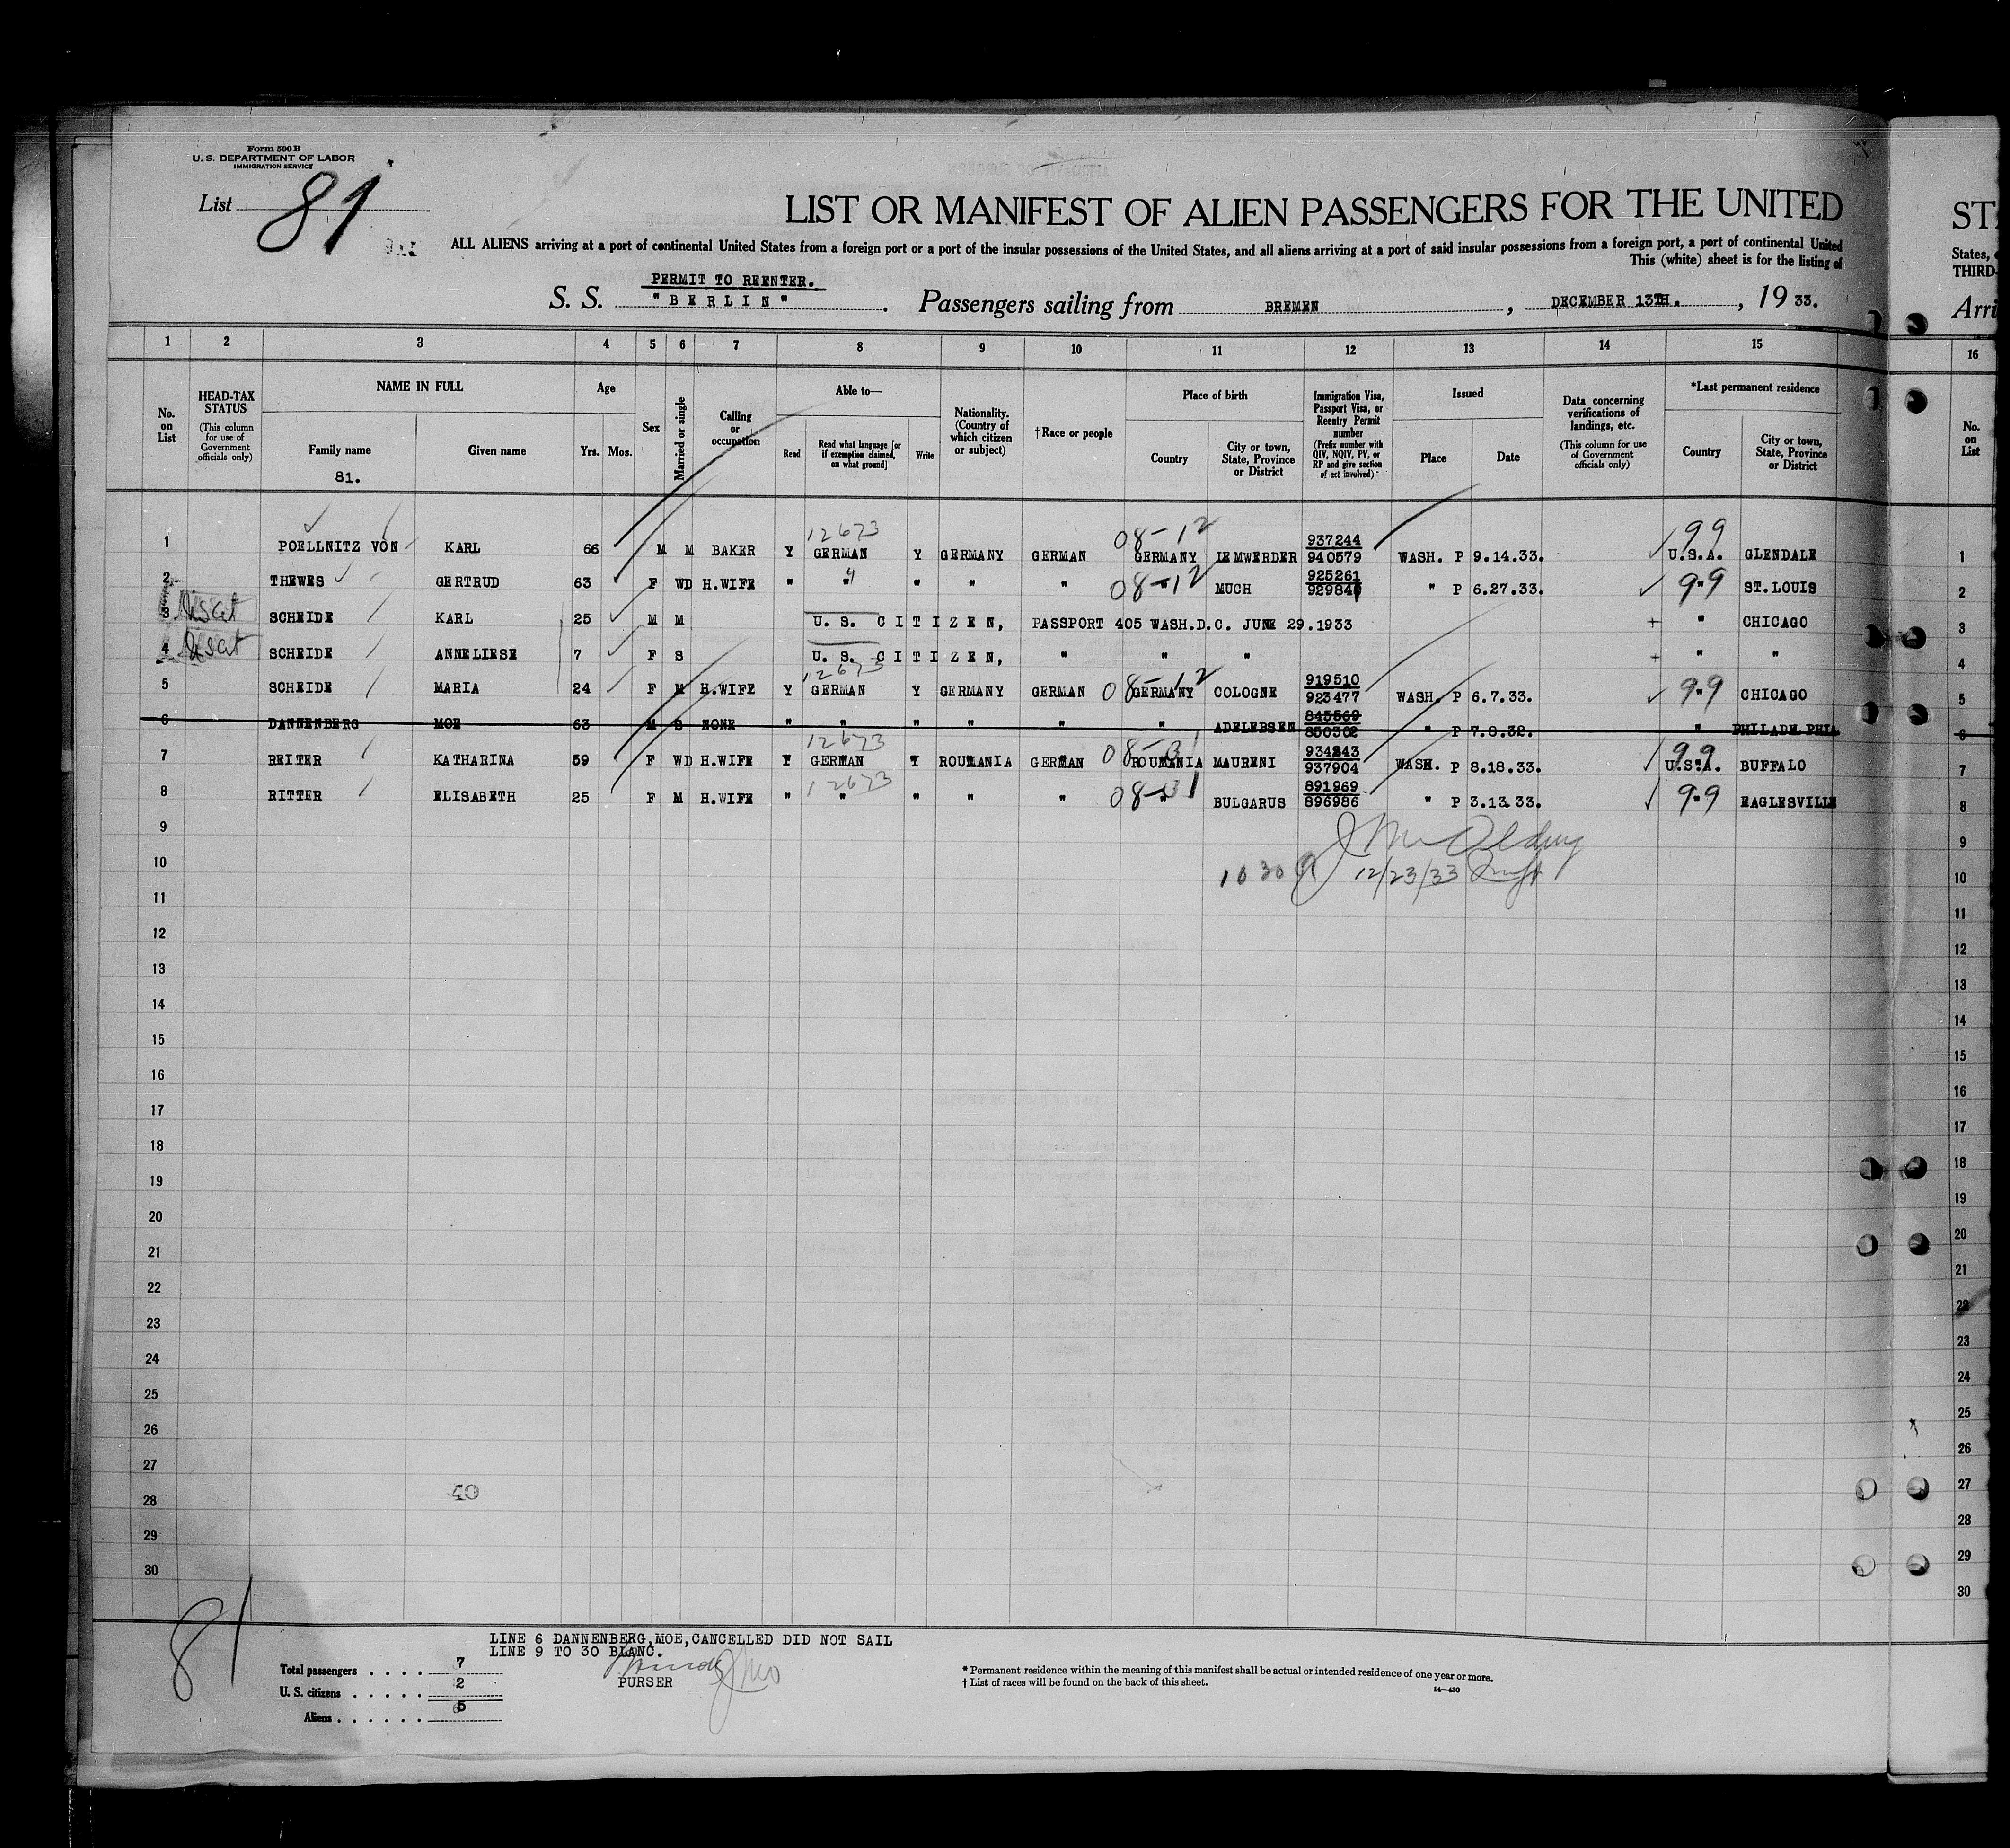 Form 500 B
U. S. DEPARTMENT OF LABOR
IMMIGRATION SERVICE
List 81
LIST OR MANIFEST OF ALIEN PASSENGERS FOR THE UNITED
ALL ALIENS arriving at a port of continental United States from a foreign port or a port of the insular possessions of the United States, and all aliens arriving at a port of said insular possessions from a foreign port, a port of continental United
This (white) sheet is for the listing of
PERMIT TO REENTER.
S. S. "BERLIN". Passengers sailing from BREMEN, DECEMBER 13TH., 1933.
ST
States,
THIRD-
Arri
1 2 3 4 5 6 7 8 9 10 11 12 13 14 15 16
No. on List
HEAD-TAX STATUS (This column for use of Government officials only)
NAME IN FULL
Family name
81.
Given name
Age
Yrs. Mos.
Sex
Married or single
Calling or occupation
Able to—
Read
Read what language [or if exemption claimed, on what ground]
Write
Nationality. (Country of which citizen or subject)
†Race or people
Place of birth
Country
City or town, State, Province or District
Immigration Visa, Passport Visa, or Reentry Permit number (Prefix number with QIV, NQIV, PV, or RP and give section of act involved)
Issued
Place
Date
Data concerning verifications of landings, etc. (This column for use of Government officials only)
*Last permanent residence
Country
City or town, State, Province or District
No. on List
12673 08-12 99
1 POELLNITZ VON KARL 66 M M BAKER Y GERMAN Y GERMANY GERMAN GERMANY LEMWERDER 937244 940579 WASH. P 9.14.33. U.S.A. GLENDALE 1
2 THEWES GERTRUD 63 F WD H.WIFE " " " " " 08-12 " MUCH 925261 929840 " P 6.27.33. 99 " ST.LOUIS 2
3 SCHEIDE KARL 25 M M U. S. CITIZEN, PASSPORT 405 WASH.D.C. JUNE 29.1933 + " CHICAGO 3
4 SCHEIDE ANNELIESE 7 F S U. S. CITIZEN, " " " + " " 4
12673
5 SCHEIDE MARIA 24 F M H.WIFE Y GERMAN Y GERMANY GERMAN 08-12 GERMANY COLOGNE 919510 923477 WASH. P 6.7.33. 99 " CHICAGO 5
6 DANNENBERG MOE 63 M S NONE " " " " " " ADELEBSEN 845569 850302 " P 7.8.32. " PHILADELPHIA 6
12673
7 REITER KATHARINA 59 F WD H.WIFE Y GERMAN Y ROUMANIA GERMAN 08-31 ROUMANIA MAURENI 934243 937904 WASH. P 8.18.33. 99 U.S.A. BUFFALO 7
12673
8 RITTER ELISABETH 25 F M H.WIFE " " " " " 08-31 " BULGARUS 891969 896986 " P 3.13.33. 99 " EAGLESVILLE 8
9 9
10 1030 12/23/33 10
11 11
12 12
13 13
14 14
15 15
16 16
17 17
18 18
19 19
20 20
21 21
22 22
23 23
24 24
25 25
26 26
27 27
28 40 28
29 29
30 30
81
LINE 6 DANNENBERG,MOE,CANCELLED DID NOT SAIL
LINE 9 TO 30 BLANC.
PURSER
Total passengers . . . . 7
U. S. citizens . . . . . 2
Aliens . . . . . . 5
* Permanent residence within the meaning of this manifest shall be actual or intended residence of one year or more.
† List of races will be found on the back of this sheet.
14—430